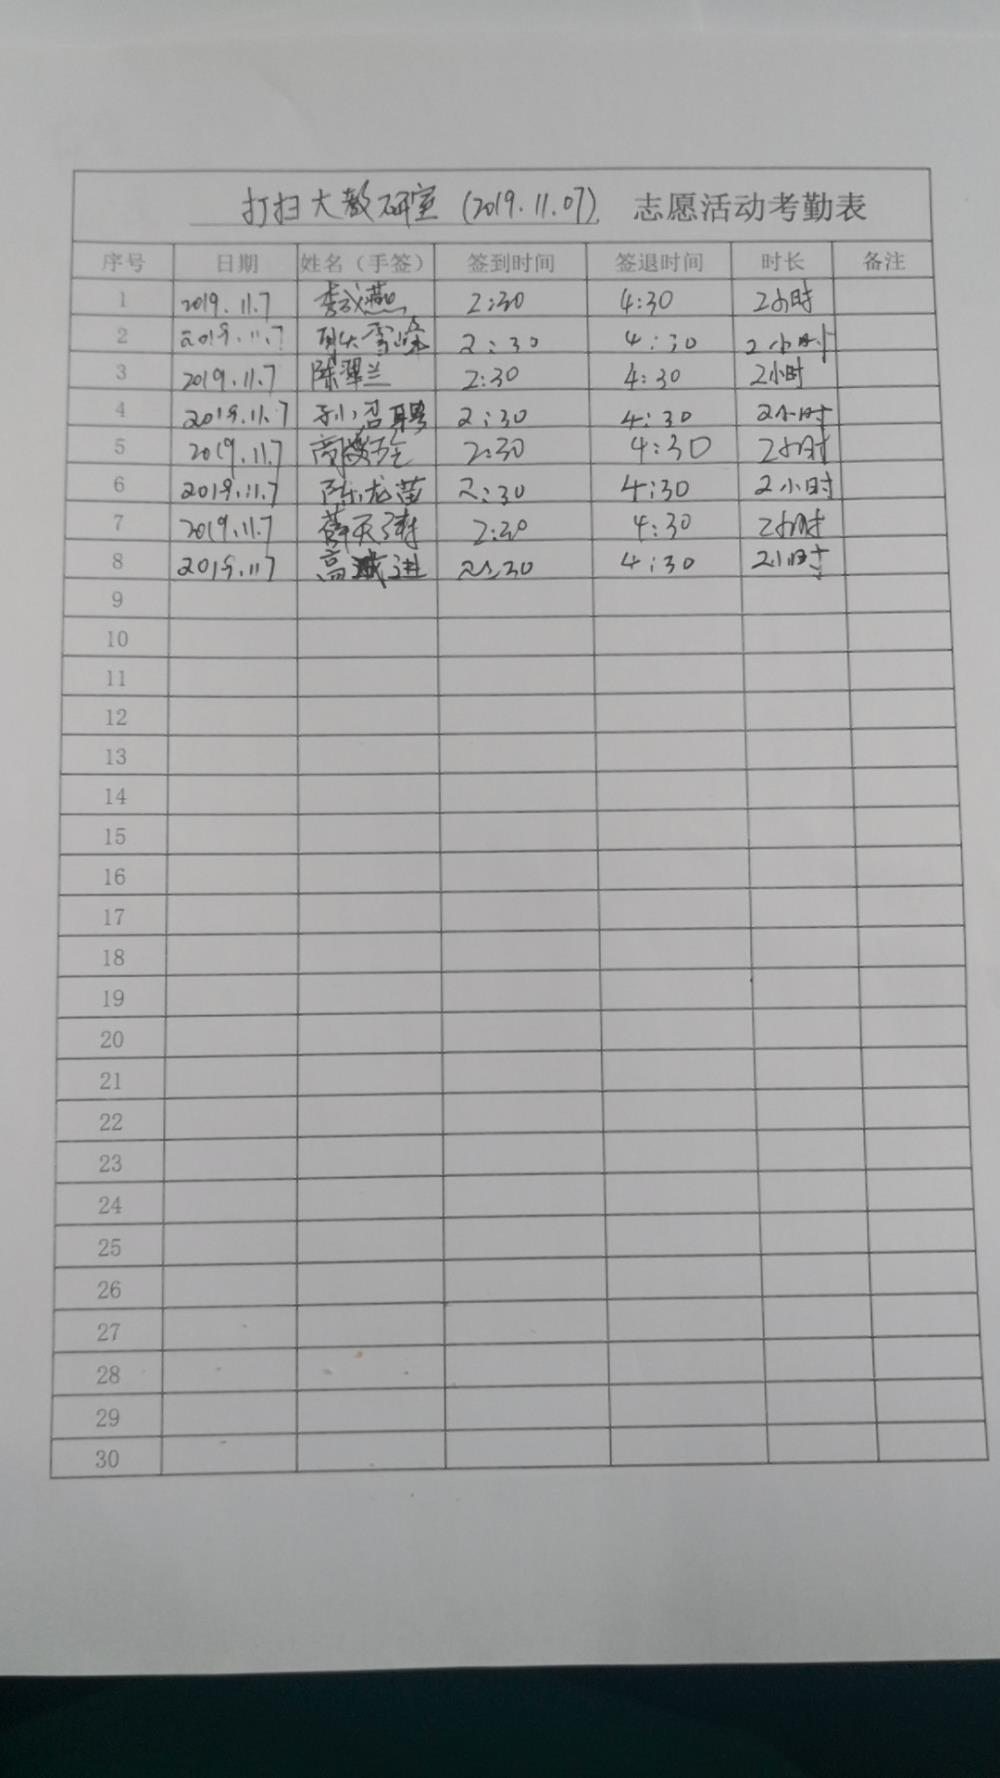 打扫大教研室(2019.11.07). 志愿活动考勤表
序号 日期 姓名（手签） 签到时间 签退时间 时长 备注
1 2019.11.7 李成燕 2:30 4:30 2小时
2 2019.11.7 雪峰 2:30 4:30 2小时
3 2019.11.7 陈翠兰 2:30 4:30 2小时
4 2019.11.7 孙召聘 2:30 4:30 2小时
5 2019.11.7 2:30 4:30 2小时
6 2019.11.7 陈龙苗 2:30 4:30 2小时
7 2019.11.7 2:30 4:30 2小时
8 2019.117 高诚进 2:30 4:30 2小时
9
10
11
12
13
14
15
16
17
18
19
20
21
22
23
24
25
26
27
28
29
30